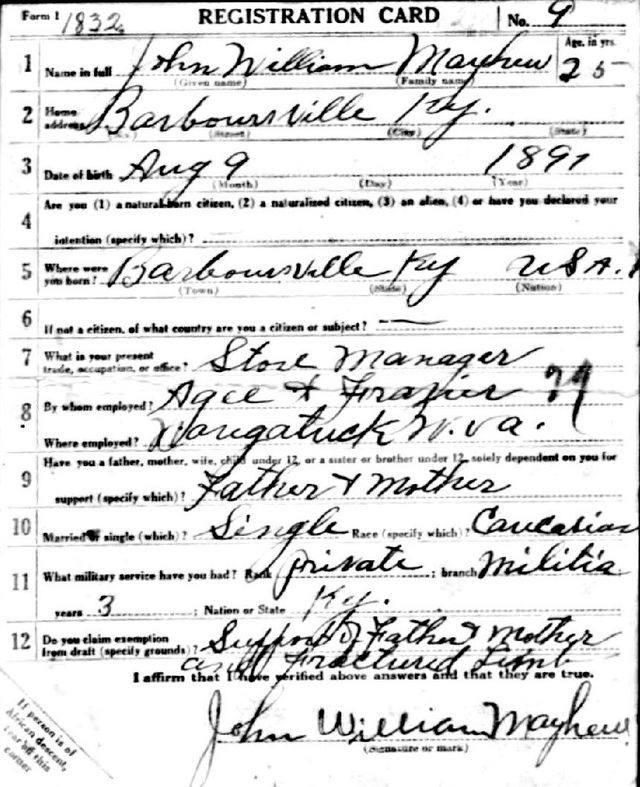 Form 1 1832 REGISTRATION CARD No. 9
1 Name in full John William Mayhew Age, in yrs. 25
(Given name) (Family name)
2 Home address Barboursville Ky.
(Street) (City) (State)
3 Date of birth Aug 9 1891
(Month) (Day) (Year)
4 Are you (1) a natural-born citizen, (2) a naturalized citizen, (3) an alien, (4) or have you declared your
intention (specify which)?
5 Where were you born? Barboursville Ky U S A.
(Town) (State) (Nation)
6 If not a citizen, of what country are you a citizen or subject? —
7 What is your present trade, occupation, or office? Store Manager
8 By whom employed? Agee & Frazier
Where employed? W.va.
9 Have you a father, mother, wife, child under 12, or a sister or brother under 12, solely dependent on you for
support (specify which)? Father & Mother
10 Married or single (which)? Single Race (specify which)? Caucasian
11 What military service have you had? Rank private ; branch Militia
years 3 ; Nation or State Ky.
12 Do you claim exemption from draft (specify grounds)? Support of Father & Mother
and Fractured Limb
I affirm that I have verified above answers and that they are true.
John William Mayhew
(Signature or mark)
If person is of
African descent,
tear off this
corner